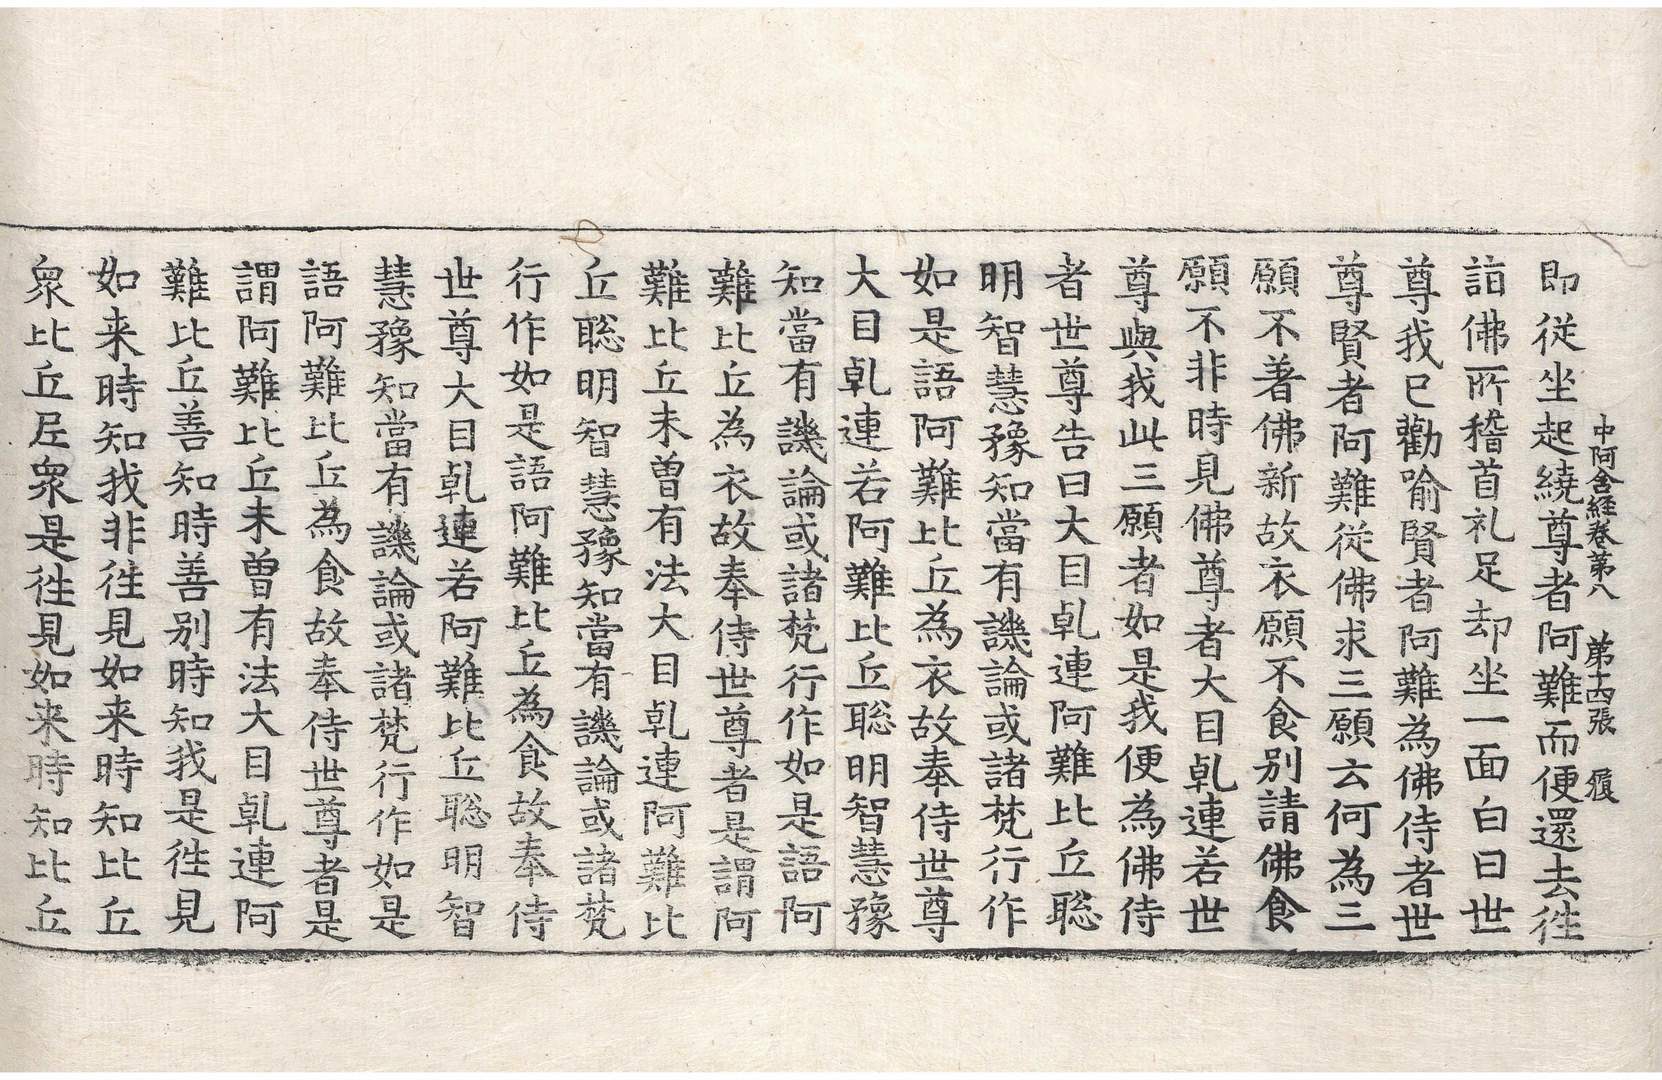 中阿含経卷第八　第十四張　履
即從坐起繞尊者阿難而便還去徃
詣佛所稽首礼足却坐一面白曰世
尊我已勸喻賢者阿難為佛侍者世
尊賢者阿難從佛求三願云何為三
願不著佛新故衣願不食別請佛食
願不非時見佛尊者大目乹連若世
尊與我此三願者如是我便為佛侍
者世尊告曰大目乹連阿難比丘聦
明智慧豫知當有譏論或諸梵行作
如是語阿難比丘為衣故奉侍世尊
大目乹連若阿難比丘聦明智慧豫
知當有譏論或諸梵行作如是語阿
難比丘為衣故奉侍世尊者是謂阿
難比丘未曾有法大目乹連阿難比
丘聦明智慧豫知當有譏論或諸梵
行作如是語阿難比丘為食故奉侍
世尊大目乹連若阿難比丘聦明智
慧豫知當有譏論或諸梵行作如是
語阿難比丘為食故奉侍世尊者是
謂阿難比丘未曾有法大目乹連阿
難比丘善知時善別時知我是徃見
如来時知我非徃見如来時知比丘
衆比丘尼衆是徃見如来時知比丘